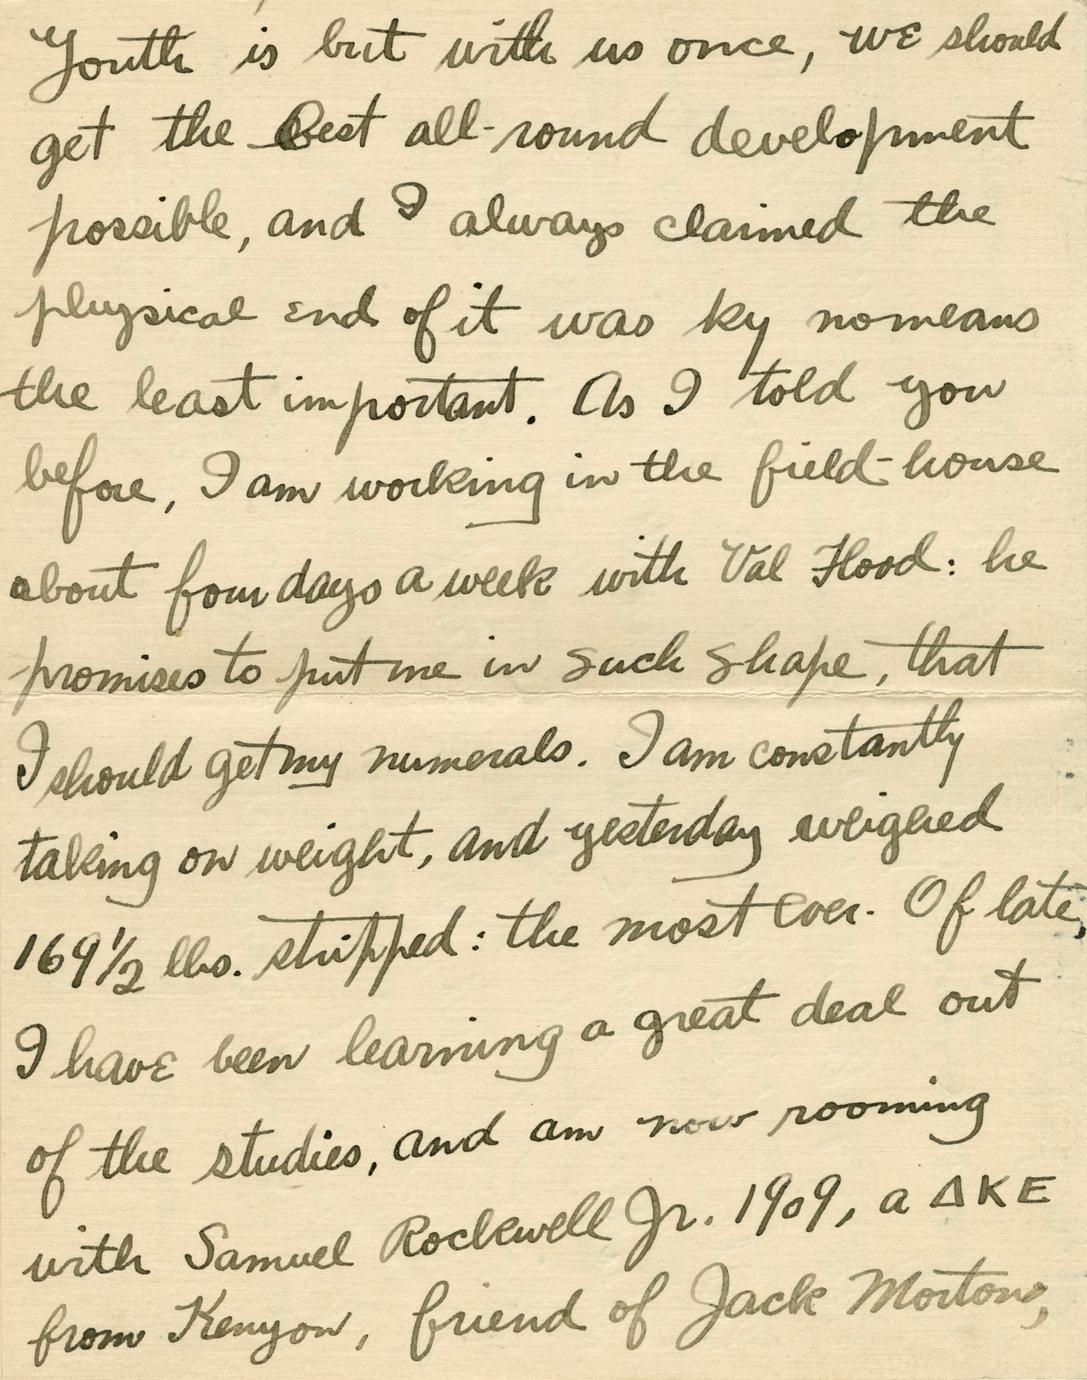 Youth is but with us once, we should
get the Best all-round development
possible, and I always claimed the
physical end of it was by no means
the least important. As I told you
before, I am working in the field-house
about four days a week with Val Flood: he
promises to put me in such shape, that
I should get my numerals. I am constantly
taking on weight, and yesterday weighed
169½ lbs. stripped: the most ever. Of late,
I have been learning a great deal out
of the studies, and am now rooming
with Samuel Rockwell Jr. 1909, a ΔKE
from Kenyon, friend of Jack Mortons,